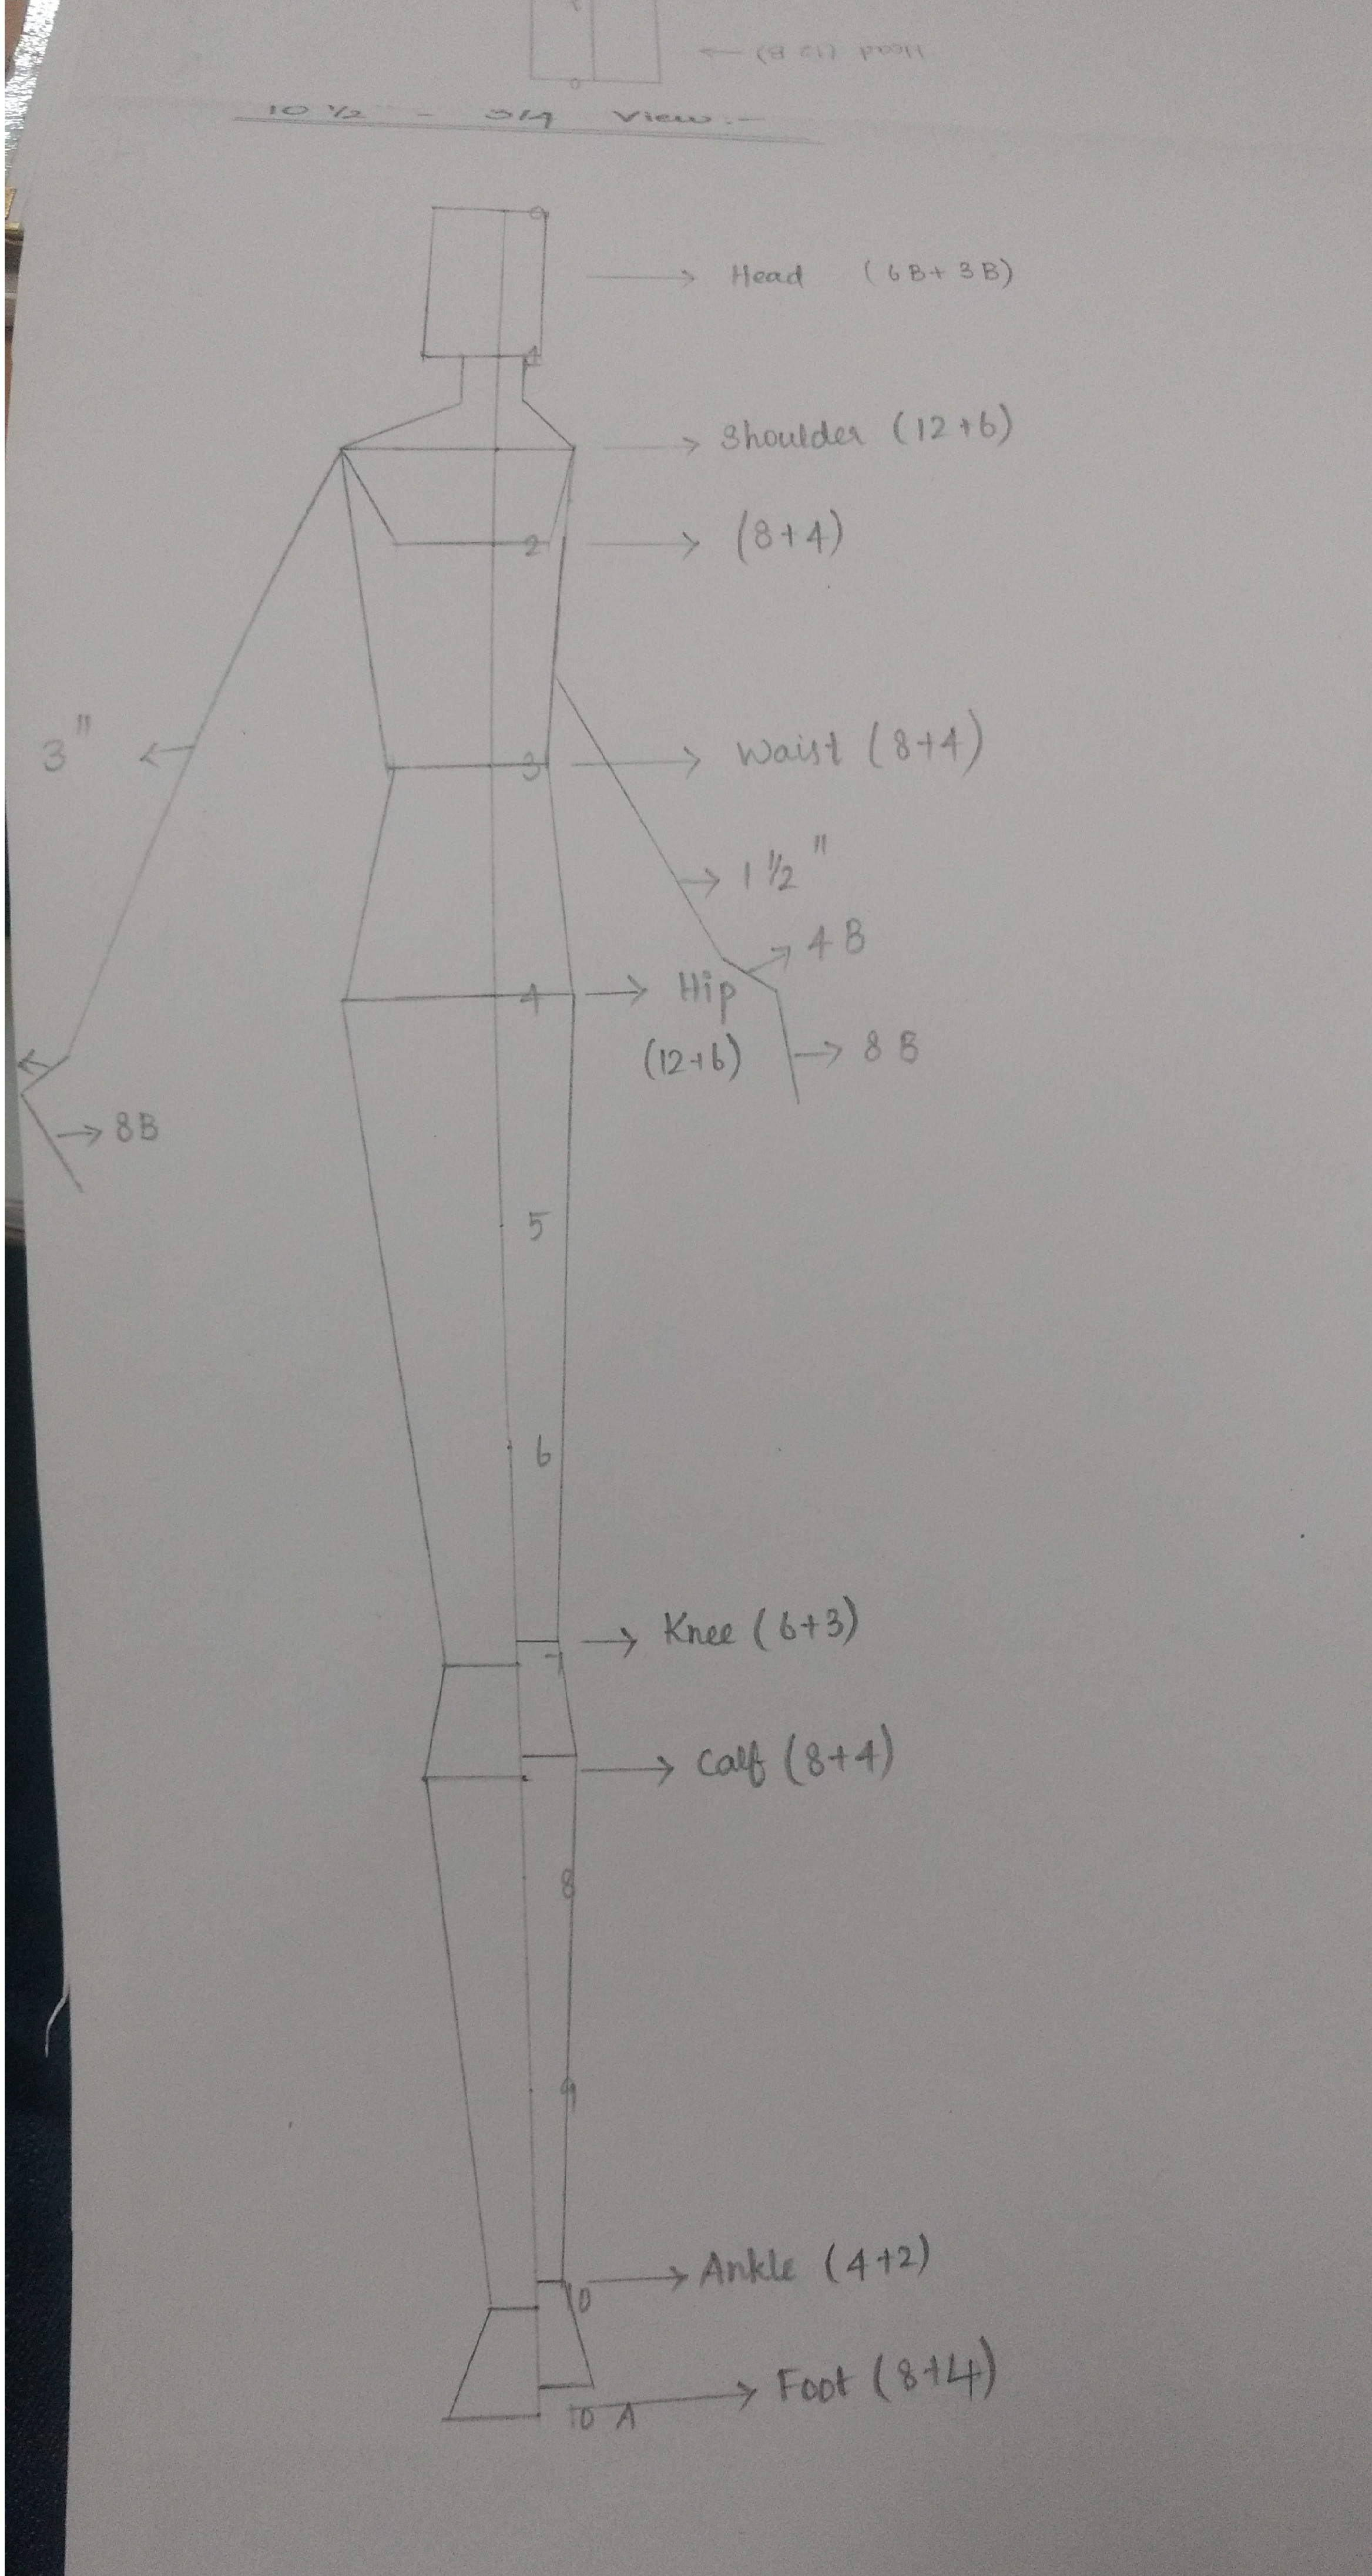 Head (12 B)
10 1/2 - 3/4 View :-
0
0
Head (6B+ 3B)
1
Shoulder (12+6)
2
(8+4)
3"
3
Waist (8+4)
1 1/2"
4B
4
Hip
(12+6)
8B
8B
5
6
Knee (6+3)
7
Calf (8+4)
8
9
Ankle (4+2)
10
Foot (8+4)
10 A